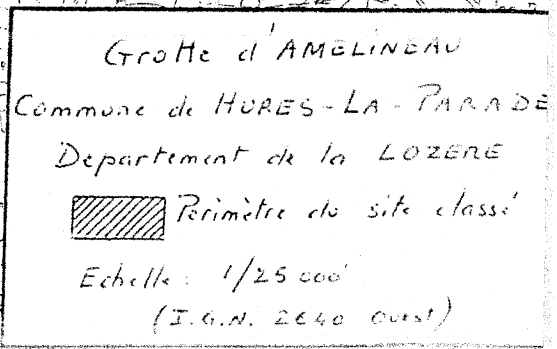 Grotte d'AMELINEAU
Commune de HURES-LA-PARADE
Département de la LOZERE
Périmètre du site classé
Echelle : 1/25 000
(I.G.N. 2640 Ouest)